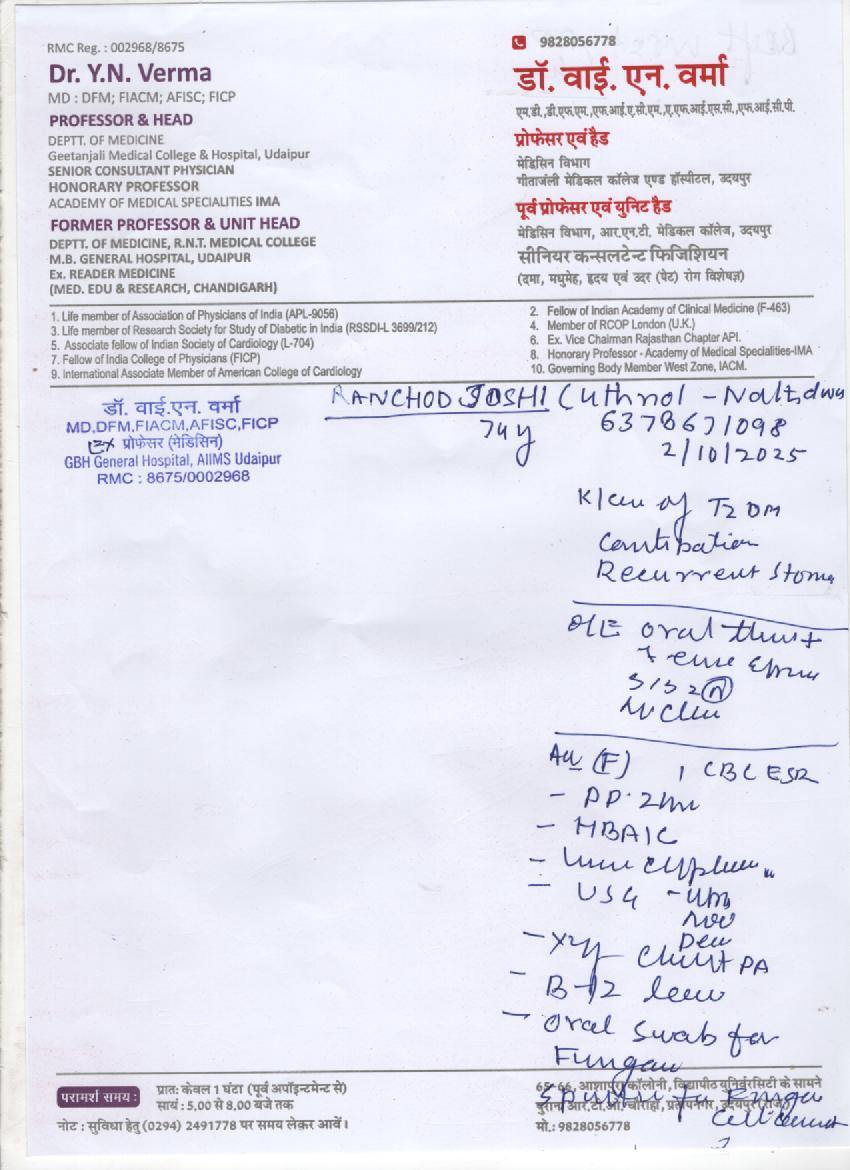 RMC Reg. : 002968/8675
Dr. Y.N. Verma
MD : DFM; FIACM; AFISC; FICP
PROFESSOR & HEAD
DEPTT. OF MEDICINE
Geetanjali Medical College & Hospital, Udaipur
SENIOR CONSULTANT PHYSICIAN
HONORARY PROFESSOR
ACADEMY OF MEDICAL SPECIALITIES IMA
FORMER PROFESSOR & UNIT HEAD
DEPTT. OF MEDICINE, R.N.T. MEDICAL COLLEGE
M.B. GENERAL HOSPITAL, UDAIPUR
Ex. READER MEDICINE
(MED. EDU & RESEARCH, CHANDIGARH)
9828056778
डॉ. वाई. एन. वर्मा
एम.डी.,डी.एफ.एम.,एफ.आई.ए.सी.एम.,ए.एफ.आई.एस.सी.,एफ.आई.सी.पी.
प्रोफेसर एवं हैड
मेडिसिन विभाग
गीतांजली मेडिकल कॉलेज एण्ड हॉस्पीटल, उदयपुर
पूर्व प्रोफेसर एवं युनिट हैड
मेडिसिन विभाग, आर.एन.टी. मेडिकल कॉलेज, उदयपुर
सीनियर कन्सलटेन्ट फिजिशियन
(दमा, मधुमेह, हृदय एवं उदर (पेट) रोग विशेषज्ञ)
1. Life member of Association of Physicians of India (APL-9056)
2. Fellow of Indian Academy of Clinical Medicine (F-463)
3. Life member of Research Society for Study of Diabetic in India (RSSDI-L 3699/212)
4. Member of RCOP London (U.K.)
5. Associate fellow of Indian Society of Cardiology (L-704)
6. Ex. Vice Chairman Rajasthan Chapter API.
7. Fellow of India College of Physicians (FICP)
8. Honorary Professor - Academy of Medical Specialities-IMA
9. International Associate Member of American College of Cardiology
10. Governing Body Member West Zone, IACM.
डॉ. वाई.एन. वर्मा
MD,DFM,FIACM,AFISC,FICP
Ex प्रोफेसर (मेडिसिन)
GBH General Hospital, AIIMS Udaipur
RMC : 8675/0002968
RANCHOD JOSHI
74 y 6378671098
2/10/2025
T2 DM
Constipation
Recurrent Stoma
O/E oral thrust
S1S2 (N)
(F) , CBC ESR
- PP
- HBA1C
-
- USG
- Xray Chest PA
- B-12
- Oral Swab for
Fungal
परामर्श समय :
प्रात: केवल 1 घंटा (पूर्व अपॉइन्टमेन्ट से)
सायं : 5.00 से 8.00 बजे तक
नोट : सुविधा हेतु (0294) 2491778 पर समय लेकर आवें।
65-66, आशापुरा कॉलोनी, विद्यापीठ युनिर्वरसिटी के सामने
पुराना आर.टी.ओ. चौराहा, प्रतापनगर, उदयपुर (राज.)
मो.: 9828056778